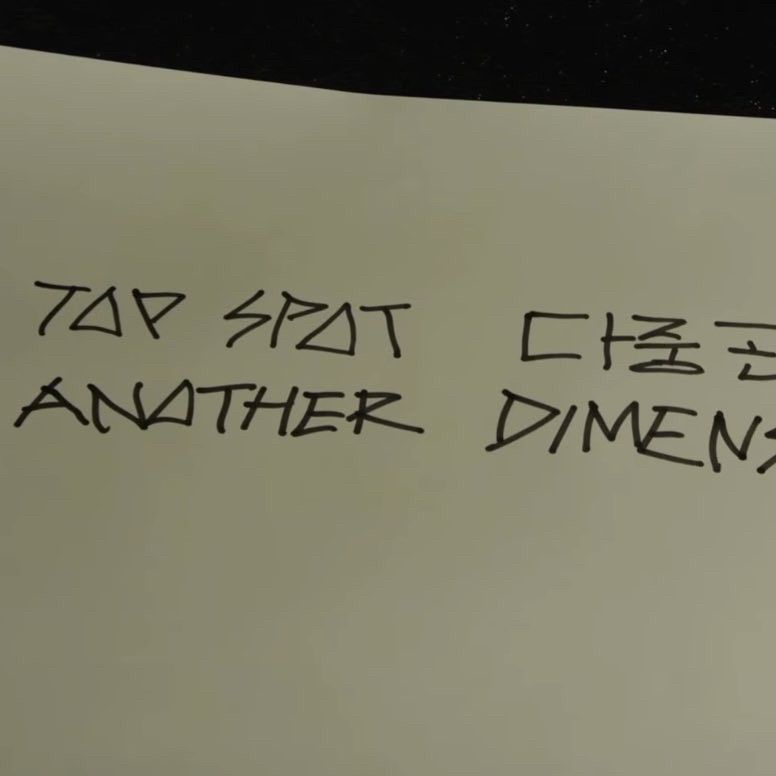 TOP SPOT 다중
ANOTHER DIMENS